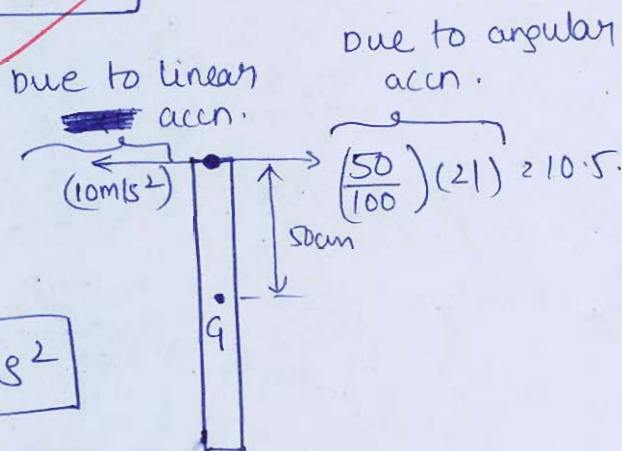 Due to linear
accn.
Due to angular
accn.
(10m/s²)
(50/100)(21) = 10.5.
50cm
G
s²